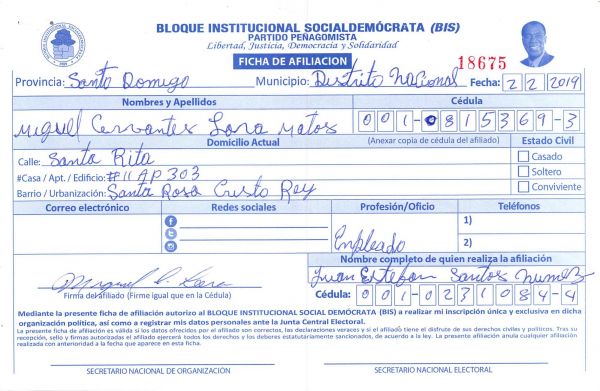 BLOQUE INSTITUCIONAL SOCIALDEMÓCRATA (BIS)
PARTIDO PEÑAGOMISTA
Libertad, Justicia, Democracia y Solidaridad
FICHA DE AFILIACION
18675
Provincia: Santo Domigo Municipio: Distrito Nacional Fecha: 2 2 2019
Nombres y Apellidos Cédula
Miguel Cervantes Lara Matos 001-0815369-3
Domicilio Actual (Anexar copia de cédula del afiliado) Estado Civil
Calle: Santa Rita Casado
#Casa / Apt. / Edificio: #11 AP 303 Soltero
Barrio / Urbanización: Santa Rosa Cristo Rey Conviviente
Correo electrónico Redes sociales Profesión/Oficio Teléfonos
1)
Empleado 2)
Nombre completo de quien realiza la afiliación
Miguel C. Lara Juan Esteban Santos Nunez
Firma del afiliado (Firme igual que en la Cédula) Cédula: 001-0231084-4
Mediante la presente ficha de afiliación autorizo al BLOQUE INSTITUCIONAL SOCIAL DEMÓCRATA (BIS) a realizar mi inscripción única y exclusiva en dicha
organización política, así como a registrar mis datos personales ante la Junta Central Electoral.
La presente ficha de afiliación es válida si los datos ofrecidos por el afiliado son correctos, las declaraciones veraces y si el afiliado tiene el disfrute de sus derechos civiles y políticos. Tras su
recepción, sello y firmas autorizadas el afiliado ejercerá todos los derechos y los deberes estatutariamente sancionados, de acuerdo a la ley. La presente afiliación anula cualquier afiliación
realizada con anterioridad a la fecha que aparece en esta ficha.
SECRETARIO NACIONAL DE ORGANIZACIÓN SECRETARIO NACIONAL ELECTORAL